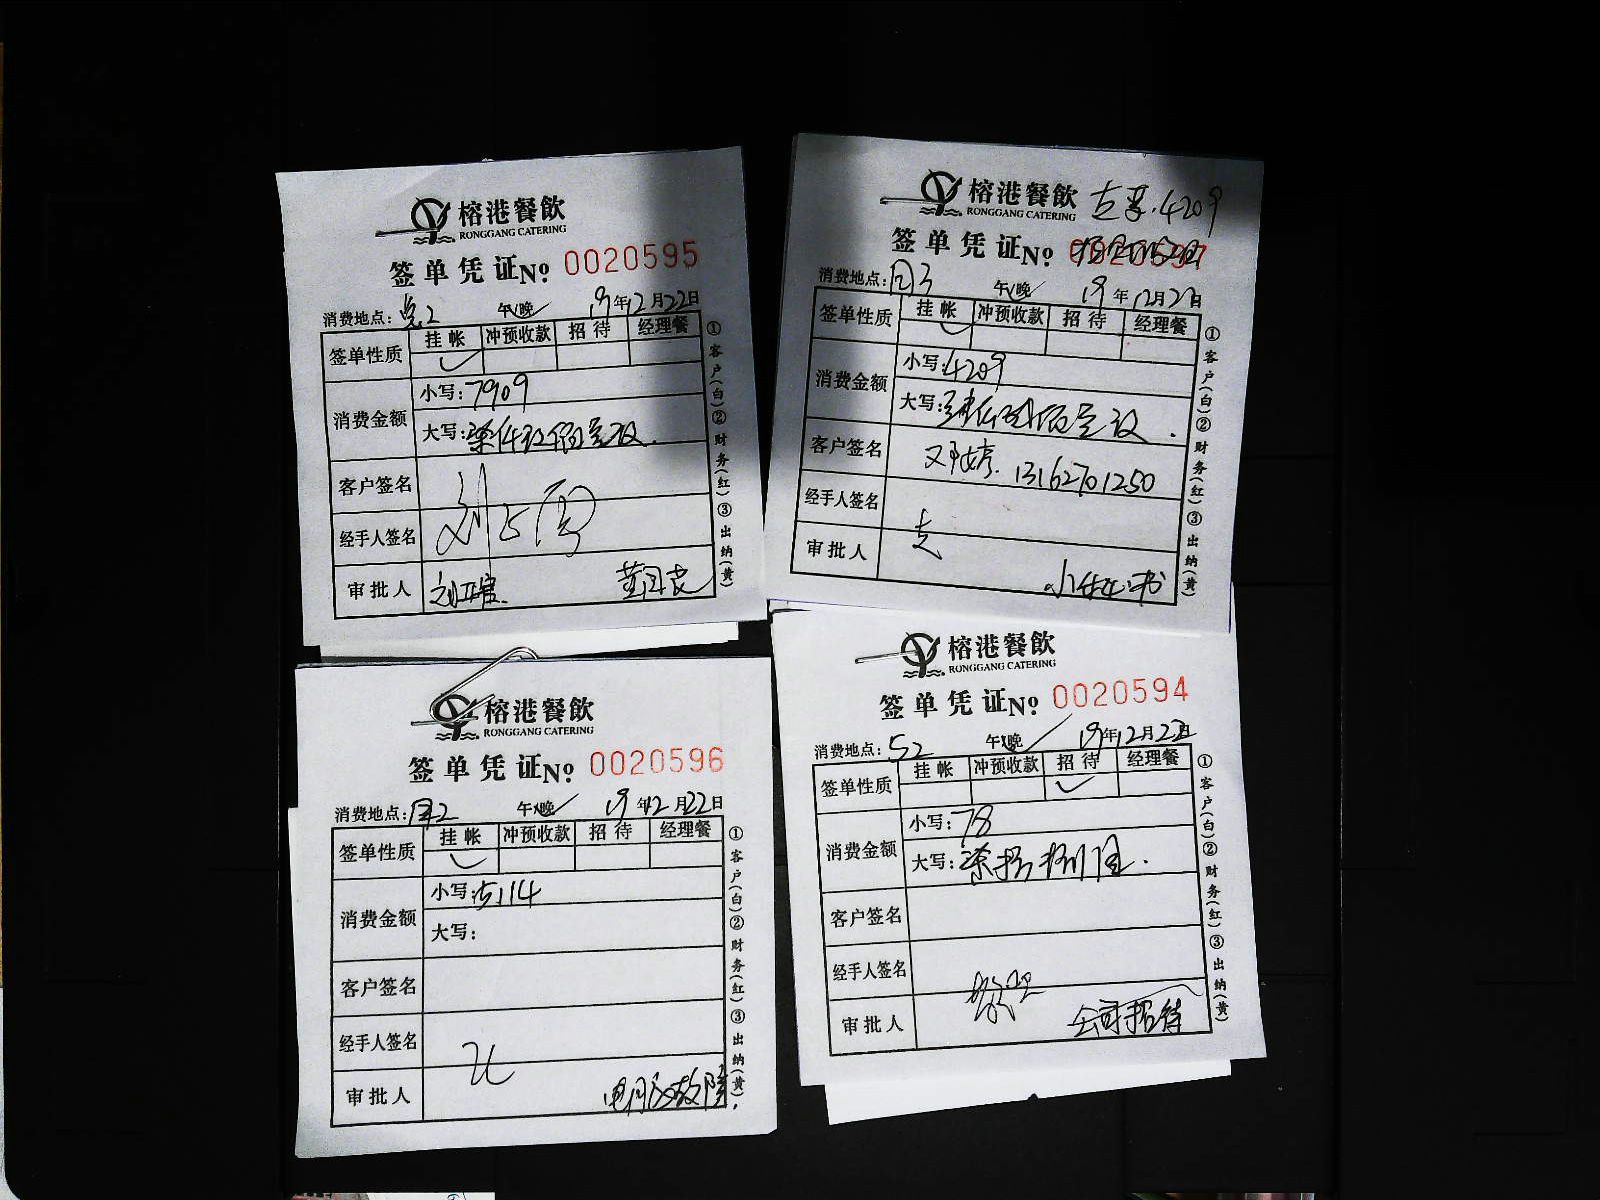 榕港餐飲
RONGGANG CATERING
签单凭证No 0020595
消费地点: 2 午/晚 19年12月22日
签单性质 挂帐 冲预收款 招待 经理餐
消费金额
小写: 7909
大写: 柒仟玖佰零玖.
客户签名
经手人签名
审批人
①客户(白)②财务(红)③出纳(黄)
榕港餐飲 4209
RONGGANG CATERING
签单凭证No
消费地点: 3 午/晚 19年12月22日
签单性质 挂帐 冲预收款 招待 经理餐
消费金额
小写: 4209
大写: 肆仟贰佰零玖.
客户签名 邓婷. 13162701250
经手人签名
审批人
①客户(白)②财务(红)③出纳(黄)
榕港餐飲
RONGGANG CATERING
签单凭证No 0020596
消费地点: 2 午/晚 19年12月22日
签单性质 挂帐 冲预收款 招待 经理餐
消费金额
小写: 5114
大写:
客户签名
经手人签名
审批人
①客户(白)②财务(红)③出纳(黄)
榕港餐飲
RONGGANG CATERING
签单凭证No 0020594
消费地点: 52 午/晚 19年12月22日
签单性质 挂帐 冲预收款 招待 经理餐
消费金额
小写: 78
大写: 柒拾捌圆.
客户签名
经手人签名
审批人 公司招待
①客户(白)②财务(红)③出纳(黄)